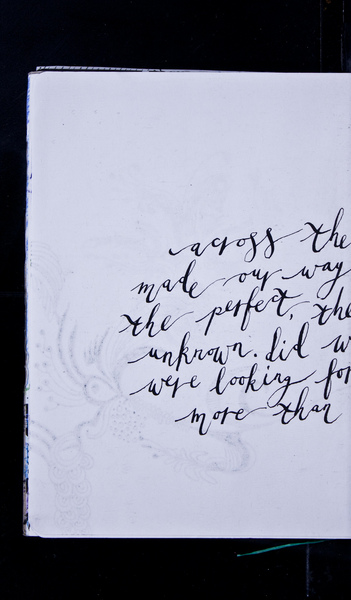 across the
made our way
the perfect, the
unknown. did w
were looking for
more than